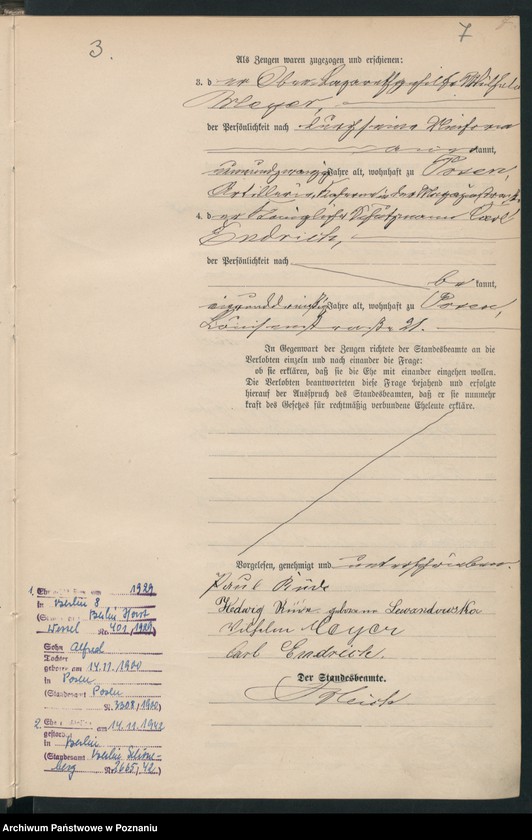 3.
7
Als Zeugen waren zugezogen und erschienen:
3. der Ober-Lazarethgehilfe Wilhelm
Meyer,
der Persönlichkeit nach durch seine Uniform
kannt,
neunundzwanzig Jahre alt, wohnhaft zu Posen,
Artillerie-Kaserne in der Magazinstraße
4. der Königliche Schutzmann Carl
Endrich,
der Persönlichkeit nach
be kannt,
einunddreißig Jahre alt, wohnhaft zu Posen,
21.
In Gegenwart der Zeugen richtete der Standesbeamte an die
Verlobten einzeln und nach einander die Frage:
ob sie erklären, daß sie die Ehe mit einander eingehen wollen.
Die Verlobten beantworteten diese Frage bejahend und erfolgte
hierauf der Ausspruch des Standesbeamten, daß er sie nunmehr
kraft des Gesetzes für rechtmäßig verbundene Eheleute erkläre.
Vorgelesen, genehmigt und unterschrieben.
Paul Rüde
Hedwig Rüde geborene Lewandowska
Wilhelm Meyer
Carl Endrich.
Der Standesbeamte.
1.
in Berlin 8
Berlin Horst
Wessel Nr. 401
Sohn Alfred
Tochter
geboren am 14.11.1900
in Posen
(Standesamt Posen
N. 3308/1900)
2. Ehe am 14.11.1942
gestorben
in Berlin
(Standesamt Berlin Schöne-
berg N. 2665/42)
Archiwum Państwowe w Poznaniu